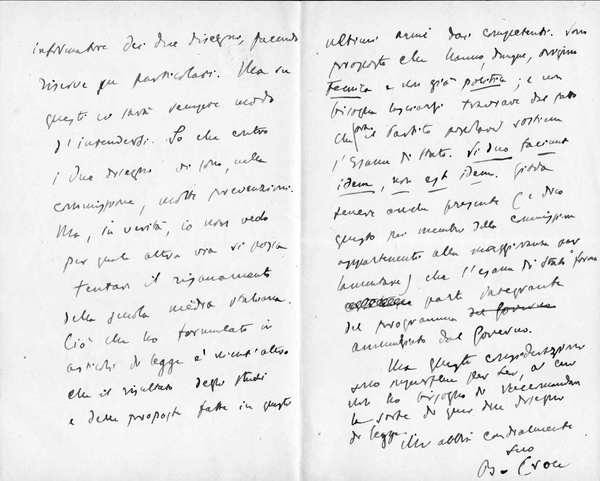 informatore dei due disegni, facendo
riserve pei particolari. Ma su
questi ci sarà sempre modo
d'intendersi. So che contro
i due disegni vi sono, nella
commissione, molte prevenzioni.
Ma, in verità, io non vedo
per quale altra via si possa
tentare il risanamento
della scuola media italiana.
Ciò che ho formulato in
articoli di legge è nient'altro
che il risultato degli studi
e delle proposte fatte in questi
ultimi anni dai competenti. Sono
proposte che hanno, dunque, origine
tecnica e non già politica; e non
bisogna lasciarsi traviare dal fatto
che il Partito popolare sostiene
l'Esame di Stato. Si duo faciunt
idem, non est idem. Giova
tenere anche presente (e dico
questo pei membri della commissione
appartenenti alla maggioranza par
lamentare) che l'esame di Stato forma
parte integrante
del programma del Governo
annunziato dal Governo.
Ma queste considerazioni
sono superflue per Lei, al cui
non ho bisogno di raccomandare
la sorte di quei due disegni
di legge.
Mi abbia cordialmente
suo
B. Croce